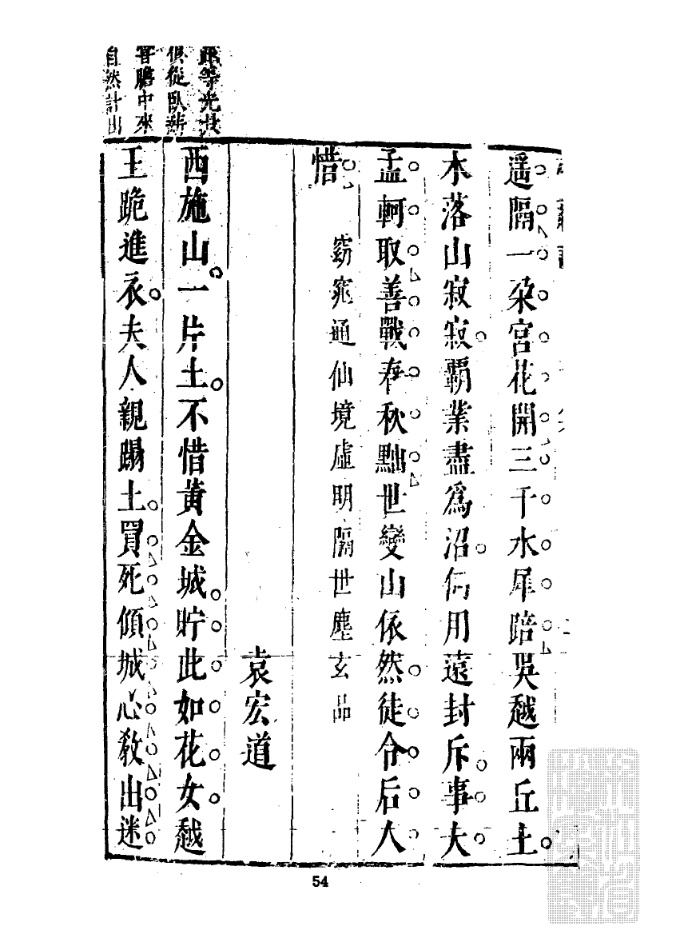 遥隔一朶宮花開三千水犀踣吳越兩丘土
木落山寂寂覇業盡爲沼何用遠封斥事大
孟軻取善戰春秋黜世變山依然徒令后人
惜
窈窕通仙境虛明隔世塵玄品
袁宏道
西施山一片土不惜黃金城貯此如花女越
王跪進衣夫人親蹋土買死傾城心敎出迷
等光
俱從臥薪
嘗膽中來
自然計出
54